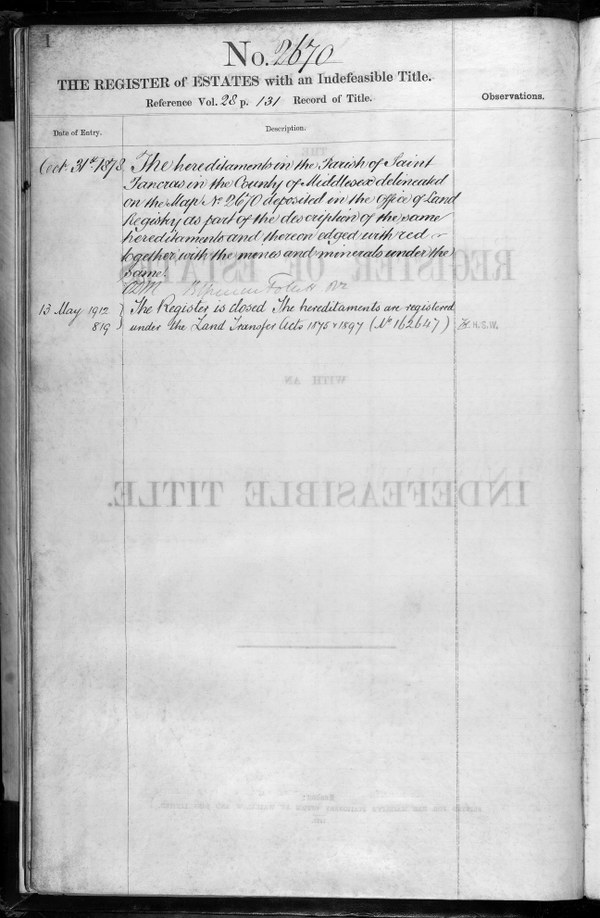 1
No. 2670
THE REGISTER of ESTATES with an Indefeasible Title.
Reference Vol. 28 p. 131 Record of Title.
Observations.
Date of Entry.
Description.
Oct. 31st 1878
The hereditaments in the Parish of Saint
Pancras in the County of Middlesex delineated
on the Map No 2670 deposited in the Office of Land
Registry as part of the description of the same
hereditaments and thereon edged with red
together with the mines and minerals under the
same.
13 May 1912
819
The Register is closed The hereditaments are registered
under the Land Transfer Acts 1875 & 1897 (No 162647)
H.S.W.
THE
REGISTER OF ESTATES
WITH AN
INDEFEASIBLE TITLE.